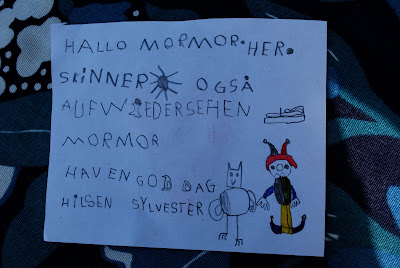 HALLO MORMOR. HER.
SKINNER OGSÅ
AUFWIEDERSEHEN
MORMOR
HAV EN GOD DAG
HILSEN SYLVESTER